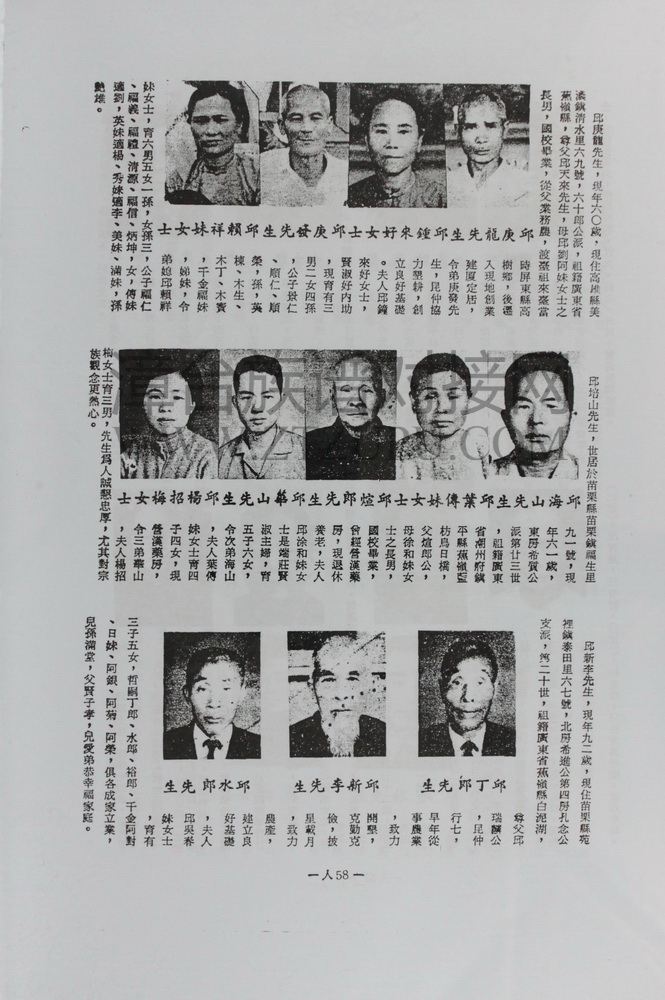 邱庚龍先生，現年六〇歲，現住高雄縣美
濃鎮清水里六九號，六十郎公派，祖籍廣東省
蕉嶺縣，尊父邱天來先生，母邱劉阿妹女士之
長男，國校畢業，從父業務農，渡臺祖來臺當
邱庚龍先生 邱鍾來好女士 邱庚發先生 邱賴祥妹女士
時屏東縣高
樹鄉，後遷
入現地創業
建廈定居，
令弟庚發先
生，昆仲協
力墾耕，創
立良好基礎
。夫人邱鐘
來好女士，
賢淑好內助
，現育有三
男二女四孫
，公子景仁
、順仁、順
榮，孫，英
棟、木生、
木丁、木寶
，千金福妹
、娣妹，令
弟媳邱賴祥
妹女士，育六男五女一孫，女孫三，公子福仁
、福義、福禮、清源、福信、炳坤，女，傅妹
適劉，英妹適楊、秀妹適李、美妹、滿妹，孫
艷雄。
邱培山先生，世居於苗栗縣苗栗鎮福生里
邱海山先生 邱葉傳妹女士 邱煊郎先生 邱華山先生 邱楊招梅女士
九一號，現
年六一歲，
東房希賢公
派第廿三世
，祖籍廣東
省潮州府鎮
平縣蕉嶺藍
枋爲日橋，
父煊郎公，
母徐和妹女
士之長男，
國校畢業，
曾經營漢藥
房，現退休
養老，夫人
邱涂和妹女
士是端莊賢
淑主婦，育
五子六女，
令次弟海山
，夫人葉傳
妹女士育四
子四女，現
營漢藥房，
令三弟華山
，夫人楊招
梅女士育三男，先生爲人誠懇忠厚，尤其對宗
族觀念更熱心。
漳台族谱对接网
WWW.ZTZUPU.COM
邱新李先生，現年九二歲，現住苗栗縣苑
裡鎮泰田里六七號，北房希進公第四房孔念公
支派，第二十世，祖籍廣東省蕉嶺縣白泥湖，
邱丁郎先生
邱新李先生
邱水郎先生
尊父邱
瑞麟公
，昆仲
行七，
早年從
事農業
，致力
開墾，
克勤克
儉，披
星載月
，致力
農產，
建立良
好基礎
，夫人
邱吳春
妹女士
，育有
三子五女，哲嗣丁郎、水郎、裕郎、千金阿對
、日妹、阿銀、阿菊、阿榮，俱各成家立業，
兒孫滿堂，父賢子孝，兄愛弟恭幸福家庭。
－人58－